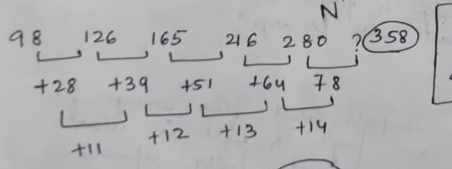 N
98 126 165 216 280 ? 358
+28 +39 +51 +64 78
+11 +12 +13 +14